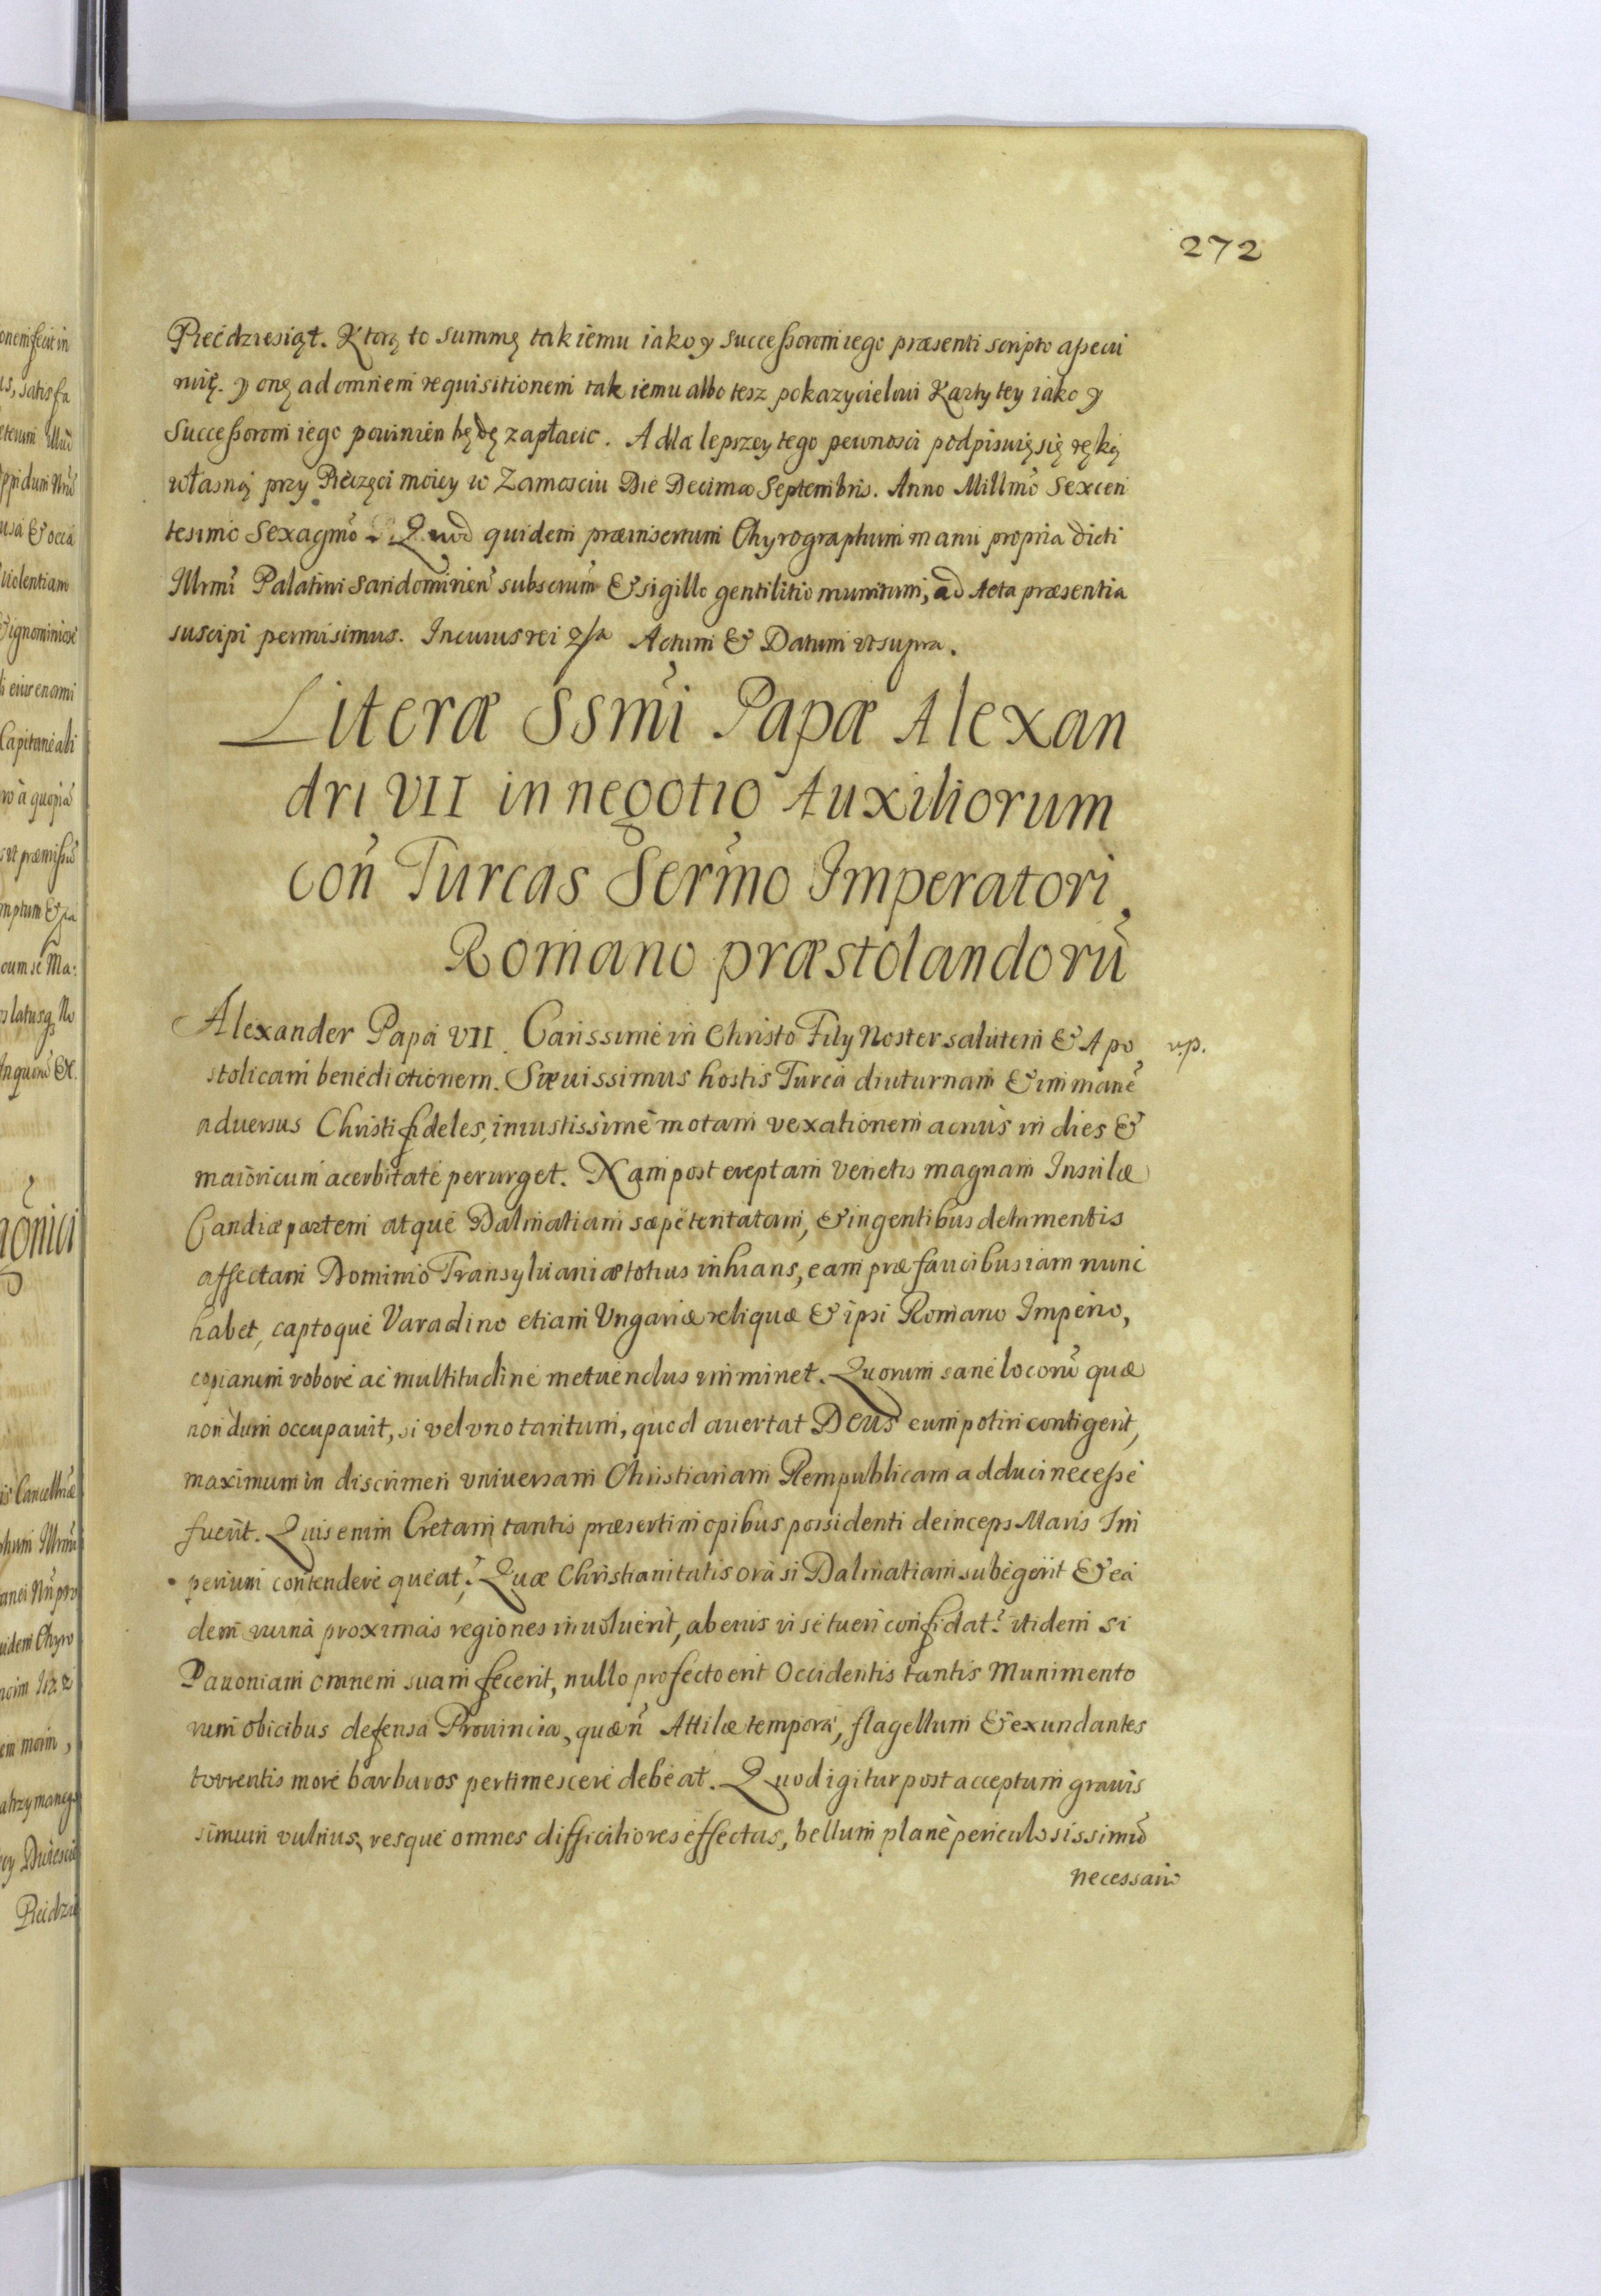 272
Pięcdziesiąt. Ktorą to summę tak iemu iako y Successorom iego præsenti scripto assecu
ruię. y onę ad omnem requisitionem tak iemu albo tesz pokazycielowi Karty tey iako y
Successorom iego powinien będę zapłacic. A dla lepszey tego pewnosci podpisuię się ręką
własną przy Pieczęci moiey w Zamosciu Die Decima Septembris. Anno Millmo Sexcen
tesimo Sexagmo Quod quidem præinsertum Chyrographum manu propria dicti
Illrmi Palatini Sandomirien subscrum & sigillo gentilitio munitum, ad Acta præsentia
suscipi permisimus. In cuius rei Actum & Datum ut supra.
Literæ Ssmi Papæ Alexan
dri VII in negotio Auxiliorum
con Turcas Sermo Imperatori
Romano præstolandorũ
Alexander Papa VII. Carissime in Christo Fily Noster salutem & Apo
stolicam benedictionem. Sæuissimus hostis Turca diuturnam & immanẽ
aduersus Christi fideles, iniustissimè motam vexationem acriùs in dies &
maiori cum acerbitate perurget. Nam post ereptam Venetis magnam Insulæ
Candiæ partem atque Dalmatiam sæpè tentatam, & ingentibus detrimentis
affectam Dominio Transyluaniæ totius inhians, eam præ faucibus iam nunc
habet, captoque Varadino etiam Vngariæ reliquæ & ipsi Romano Imperio,
copiarum robore ac multitudine metuendus imminet. Quorum sanè locorũ quæ
nondum occupauit, si vel vno tantum, quod auertat Deus eum potiri contigerit,
maximum in discrimen vniuersam Christianam Rempublicam adduci necesse
fuerit. Quis enim Cretam tantis præsertim opibus possidenti deinceps Maris Im
perium contendere queat? Quæ Christianitatis ora si Dalmatiam subegerit & eâ
dem ruinâ proximas regiones inuoluerit, ab eius vi se tueri confidat? itidem si
Panoniam omnem suam fecerit, nullo profecto erit Occidentis tantis Munimento
rum obicibus defensa Prouincia, quæ ñ Attilæ tempora, flagellum & exundantes
torrentis more barbaros pertimescere debeat. Quod igitur post acceptum grauis
simum vulnus, resque omnes difficiliores effectas, bellum planè periculosissimũ
necessario